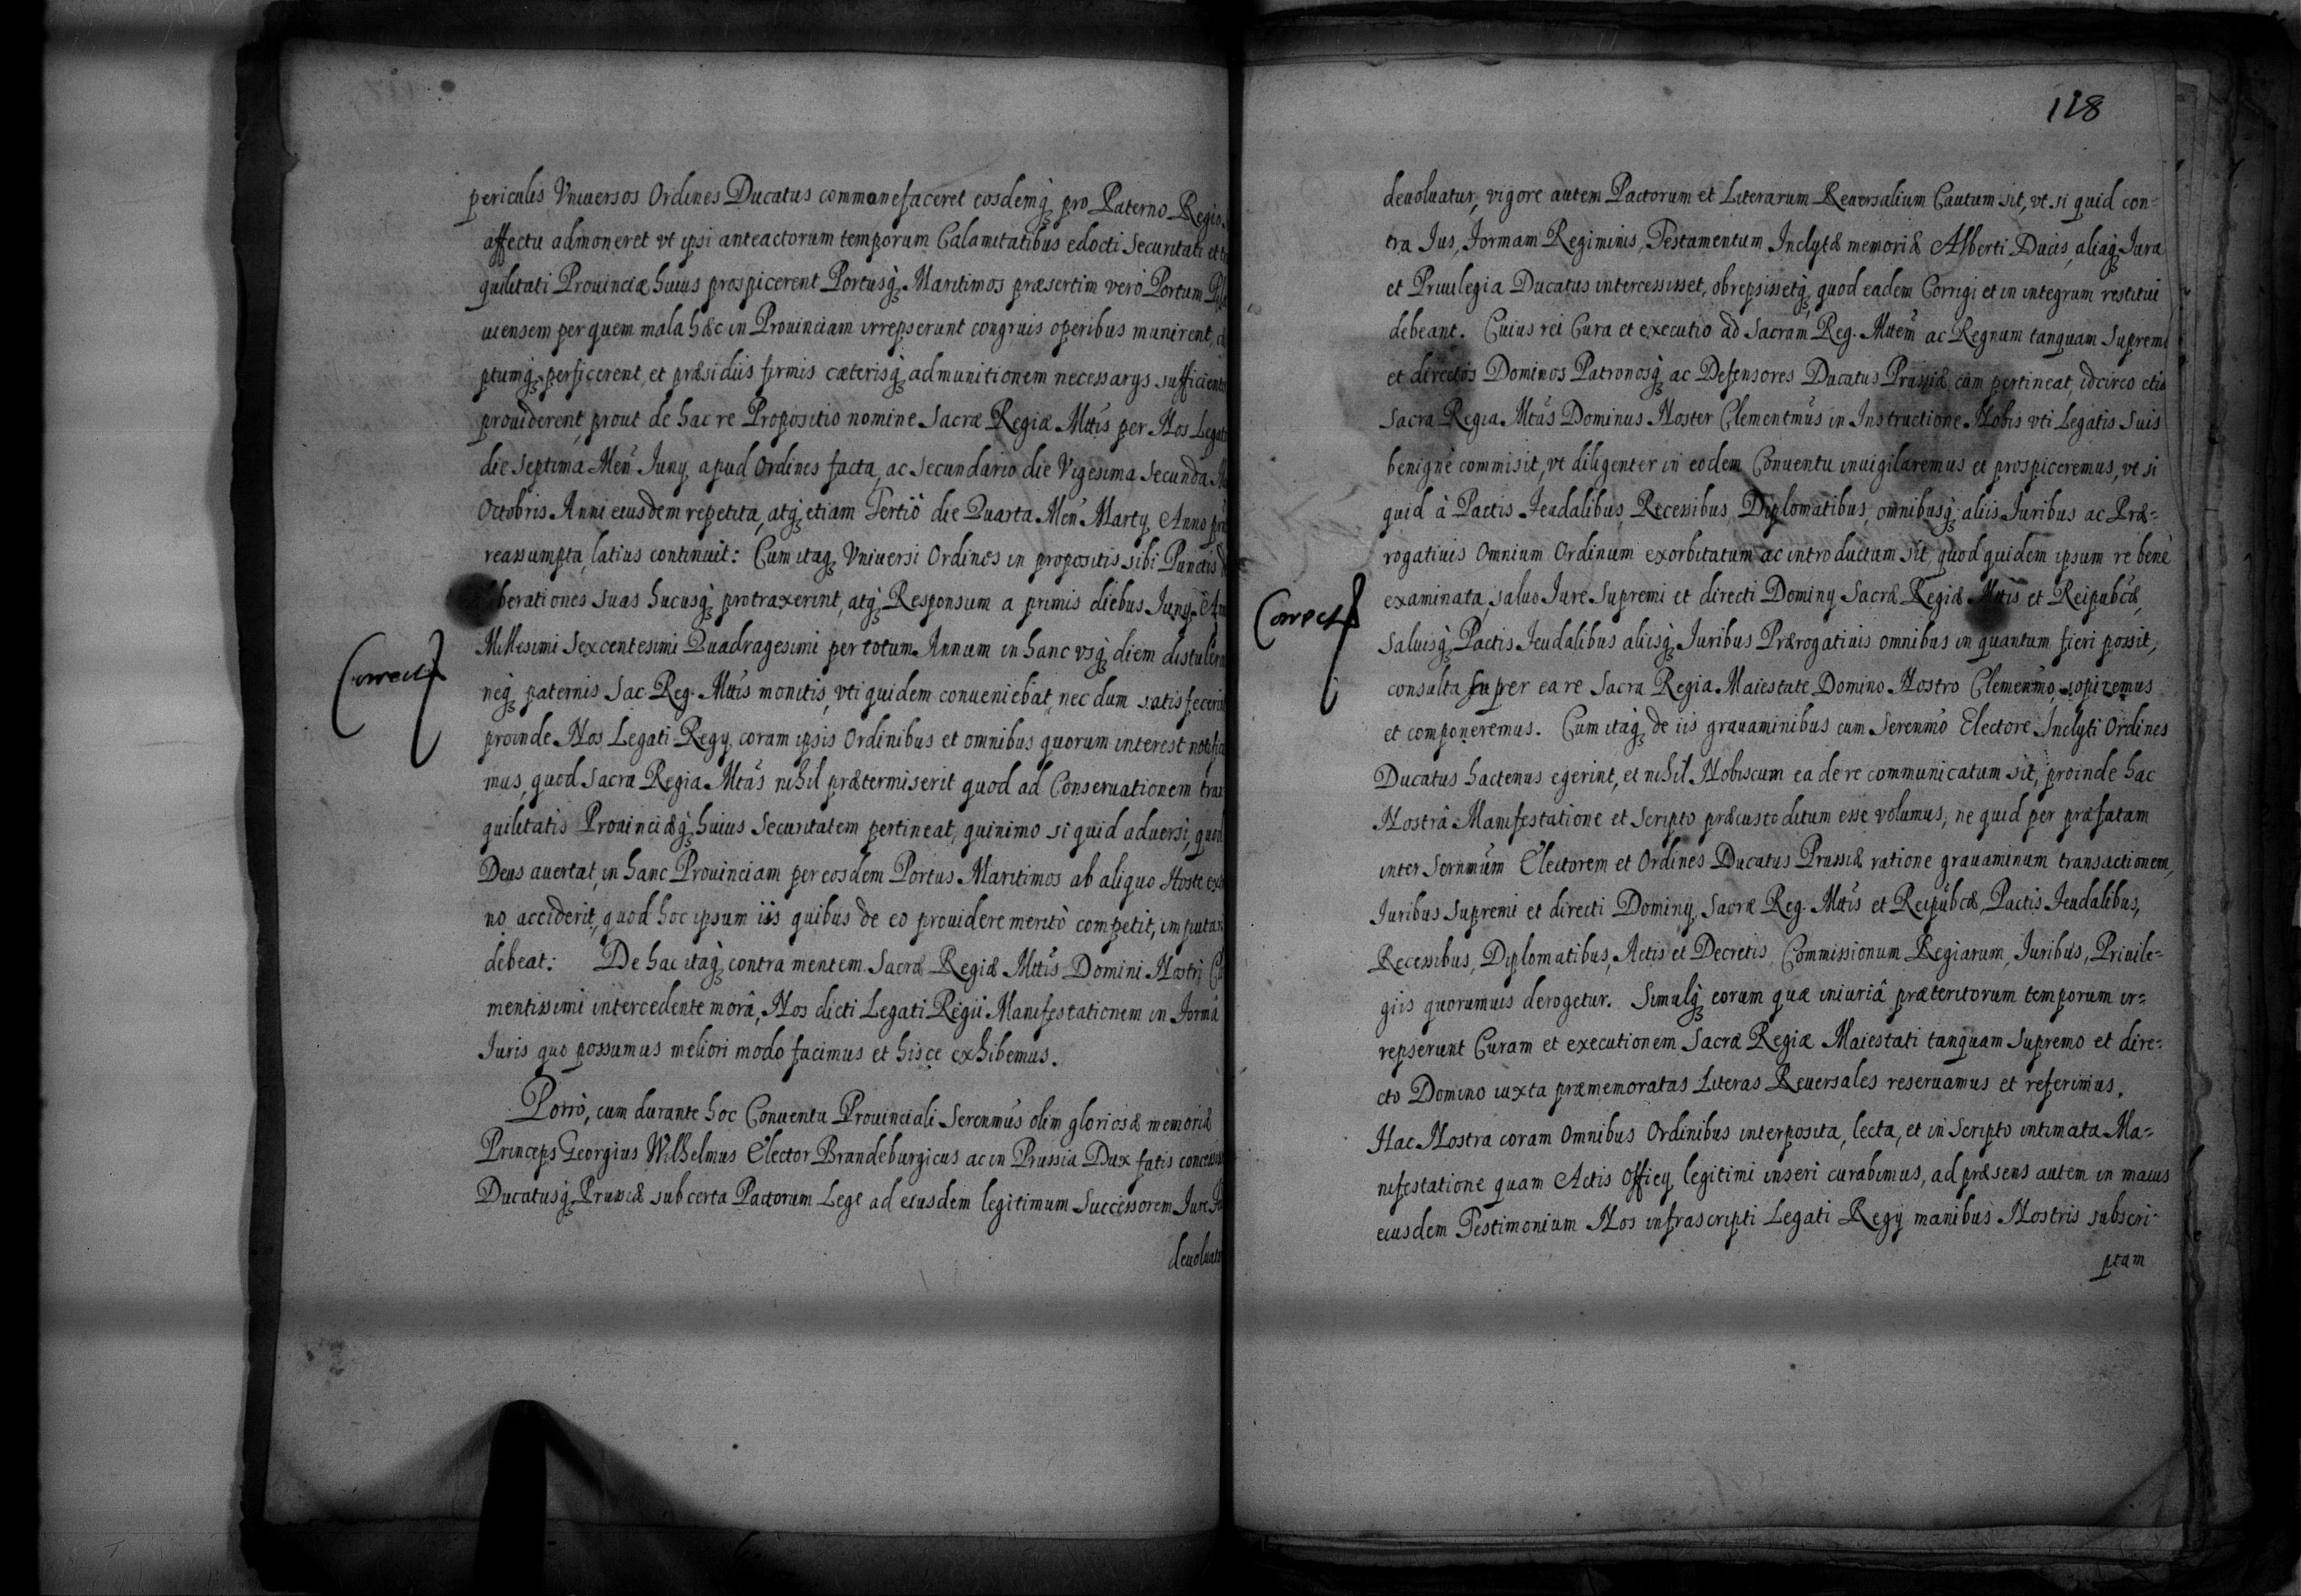 periculis Vniuersos Ordines Ducatus commonefaceret eosdemq₃ pro Paterno Regio
affectu admoneret vt ipsi anteactorum temporum Calamitatibus edocti Securitati et
quilitati Prouinciæ huius prospicerent Portusq₃ Maritimos præsertim verò Portum
uiensem per quem mala hæc in Prouinciam irrepserunt congruis operibus munirent,
ptumq₃ perficerent, et præsidiis firmis cæterisq₃ ad munitionem necessarys sufficienter
prouiderent, prout de hac re Propositio nomine Sacræ Regiæ Mttis per Nos Legatos
die Septima Men̄ Iuny apud Ordines facta, ac Secundario die Vigesima Secunda
Octobris Anni eiusdem repetita, atq₃ etiam Tertiò die Quarta Men̄ Marty Anno
reassumpta, latius continuit: Cum itaq₃ Vniuersi Ordines in propositis sibi Punctis
berationes suas hucusq₃ protraxerint, atq₃ Responsum a primis diebus Iuny
Millesimi Sexcentesimi Quadragesimi per totum Annum in hanc vsq₃ diem distulerint
neq₃ paternis Sac. Reg. Mttis monitis, vti quidem conueniebat, nec dum satis fecerint
proinde Nos Legati Regy coram ipsis Ordinibus et omnibus quorum interest
mus, quod Sacra Regia Mtas nihil prætermiserit quod ad Conseruationem tran
quilitatis Prouinciæq₃ huius Securitatem pertineat, quinimo si quid aduersi, quod
Deus auertat, in hanc Prouinciam per eosdem Portus Maritimos ab aliquo Hoste
no acciderit, quod hoc ipsum iis quibus de eo prouidere meritò competit, imputari
debeat: De hac itaq₃ contra mentem Sacræ Regiæ Mttis Domini Nostri
mentissimi intercedente morâ, Nos dicti Legati Regii Manifestationem in Formâ
Iuris quo possumus meliori modo facimus et hisce exhibemus.
Porrò, cum durante hoc Conuentu Prouinciali Serenmus olim gloriosæ memoriæ
Princeps Georgius Wilhelmus Elector Brandeburgicus ac in Prussia Dux fatis
Ducatusq₃ Prussiæ sub certa Pactorum Lege ad eiusdem legitimum Successorem Iure
deuoluatur
Correct
118
deuoluatur, vigore autem Pactorum et Literarum Reuersalium Cautum sit, vt si quid con=
tra Ius, Formam Regiminis, Testamentum Inclytæ memoriæ Alberti Ducis, aliaq₃ Iura
et Priuilegia Ducatus intercessisset, obrepsissetq₃, quod eadem Corrigi et in integrum restitui
debeant. Cuius rei Cura et executio ad Sacram Reg. Mttem ac Regnum tanquam Supremos
et directos Dominos Patronosq₃ ac Defensores Ducatus Prussiæ cùm pertineat, idcirco etiam
Sacra Regia Mtas Dominus Noster Clementmus in Instructione Nobis vti Legatis Suis
benignè commisit, vt diligenter in eodem Conuentu inuigilaremus et prospiceremus, vt si
quid à Pactis Feudalibus, Recessibus, Diplomatibus, omnibusq₃ aliis Iuribus ac Præ=
rogatiuis Omnium Ordinum exorbitatum ac introductum sit, quod quidem ipsum re benè
examinata, saluo Iure Supremi et directi Dominy Sacræ Regiæ Mttis et Reipubcæ,
Saluisq₃ Pactis Feudalibus aliisq₃ Iuribus Prærogatiuis omnibus in quantum fieri possit,
consulta super ea re Sacra Regia Maiestate Domino Nostro Clementmo, sopiremus
et componeremus. Cum itaq₃ de iis grauaminibus cum Serenmo Electore Inclyti Ordines
Ducatus hactenus egerint, et nihil Nobiscum ea de re communicatum sit, proinde hac
Nostrâ Manifestatione et Scripto præcustoditum esse volumus, ne quid per præfatam
inter Sernmum Electorem et Ordines Ducatus Prussiæ ratione grauaminum transactionem,
Iuribus Supremi et directi Dominy Sacræ Reg. Mttis et Reipubcæ, Pactis Feudalibus,
Recessibus, Diplomatibus, Actis et Decretis Commissionum Regiarum, Iuribus, Priuile=
giis quorumuis derogetur. Simulq₃ eorum quæ iniuriâ præteritorum temporum ir=
repserunt Curam et executionem Sacræ Regiæ Maiestati tanquam Supremo et dire=
cto Domino iuxta præmemoratas Literas Reuersales reseruamus et referimus.
Hac Nostra coram Omnibus Ordinibus interposita, lecta, et in Scripto intimata Ma=
nifestatione quam Actis Officy legitimi inseri curabimus, ad præsens autem in maius
eiusdem Testimonium Nos infrascripti Legati Regy manibus Nostris subscri=
ptam
Correct